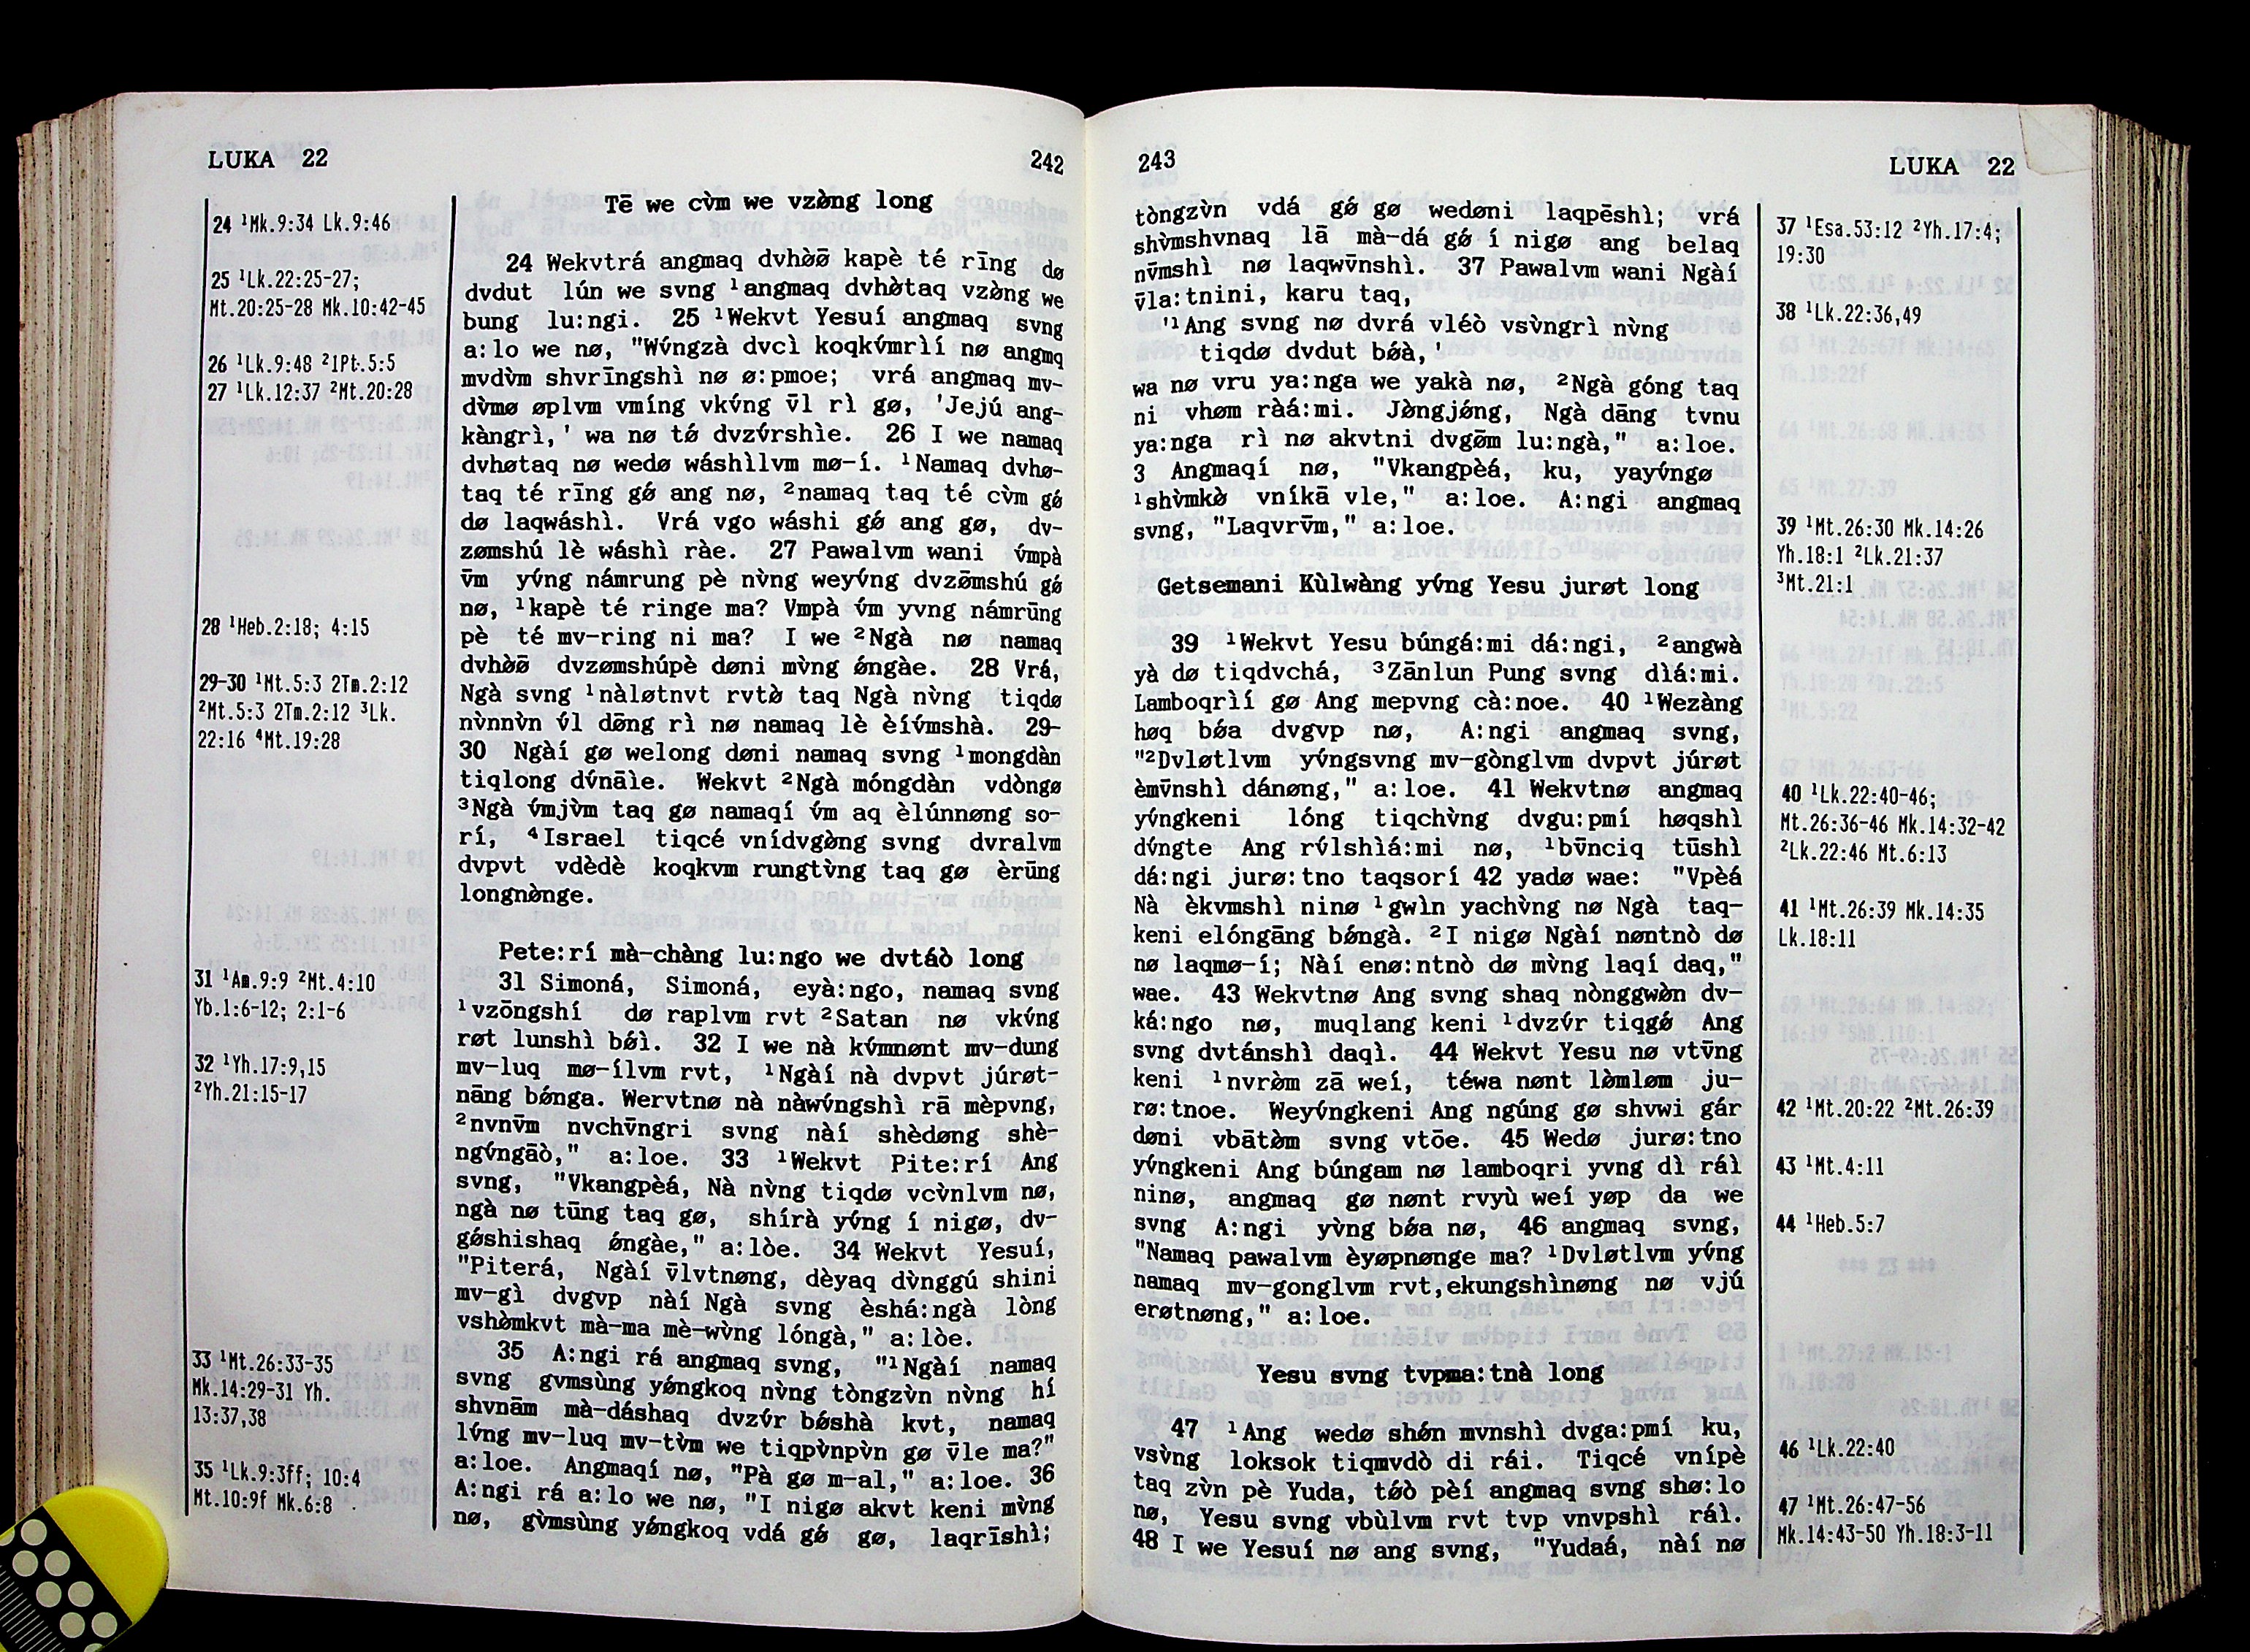 LUKA 22
242
24 ¹Mk.9:34 Lk.9:46
25 ¹Lk.22:25-27;
Mt.20:25-28 Mk.10:42-45
26 ¹Lk.9:48 ²1Pt.5:5
27 ¹Lk.12:37 ²Mt.20:28
28 ¹Heb.2:18; 4:15
29-30 ¹Mt.5:3 2Tm.2:12
²Mt.5:3 2Tm.2:12 ³Lk.
22:16 ⁴Mt.19:28
31 ¹Am.9:9 ²Mt.4:10
Yb.1:6-12; 2:1-6
32 ¹Yh.17:9,15
²Yh.21:15-17
33 ¹Mt.26:33-35
Mk.14:29-31 Yh.
13:37,38
35 ¹Lk.9:3ff; 10:4
Mt.10:9f Mk.6:8
Tē we cv̀m we vzø̀ng long
24 Wekvtrá angmaq dvhø̀ø̄ kapè té rīng dø
dvdut lún we svng ¹angmaq dvhø̀taq vzø̀ng we
bung lu:ngi. 25 ¹Wekvt Yesuí angmaq svng
a:lo we nø, "Wv́ngzà dvcì koqkv́mrìí nø angmq
mvdv̀m shvrīngshì nø ø:pmoe; vrá angmaq mv-
dv̀mø øplvm vmíng vkv́ng v̄l rì gø, 'Jejú ang-
kàngrì,' wa nø tǿ dvzv́rshìe. 26 I we namaq
dvhøtaq nø wedø wáshìlvm mø-í. ¹Namaq dvhø-
taq té rīng gǿ ang nø, ²namaq taq té cv̀m gǿ
dø laqwáshì. Vrá vgo wáshi gǿ ang gø, dv-
zømshú lè wáshì ràe. 27 Pawalvm wani v́mpà
v̄m yv́ng námrung pè nv̀ng weyv́ng dvzø̄mshú gǿ
nø, ¹kapè té ringe ma? Vmpà v́m yvng námrūng
pè té mv-ring ni ma? I we ²Ngà nø namaq
dvhø̀ø̄ dvzømshúpè døni mv̀ng ǿngàe. 28 Vrá,
Ngà svng ¹nàløtnvt rvtø̀ taq Ngà nv̀ng tiqdø
nv̀nnv̀n v́l dø̄ng rì nø namaq lè èív́mshà. 29-
30 Ngàí gø welong døni namaq svng ¹mongdàn
tiqlong dv́nāìe. Wekvt ²Ngà móngdàn vdòngø
³Ngà v́mjv̀m taq gø namaqí v́m aq èlúnnøng so-
rí, ⁴Israel tiqcé vnídvgø̀ng svng dvralvm
dvpvt vdèdè koqkvm rungtv̀ng taq gø èrūng
longnø̀nge.
Pete:rí mà-chàng lu:ngo we dvtáò long
31 Simoná, Simoná, eyà:ngo, namaq svng
¹vzōngshí dø raplvm rvt ²Satan nø vkv́ng
røt lunshì bǿì. 32 I we nà kv́mnønt mv-dung
mv-luq mø-ílvm rvt, ¹Ngàí nà dvpvt júrøt-
nāng bǿnga. Wervtnø nà nàwv́ngshì rā mèpvng,
²nvnv̄m nvchv̄ngri svng nàí shèdøng shè-
ngv́ngāò," a:loe. 33 ¹Wekvt Pite:rí Ang
svng, "Vkangpèá, Nà nv̀ng tiqdø vcv̀nlvm nø,
ngà nø tūng taq gø, shírà yv́ng í nigø, dv-
gǿshishaq ǿngàe," a:lòe. 34 Wekvt Yesuí,
"Piterá, Ngàí v̄lvtnøng, dèyaq dv̀nggú shini
mv-gì dvgvp nàí Ngà svng èshá:ngà lòng
vshø̀mkvt mà-ma mè-wv̀ng lóngà," a:lòe.
35 A:ngi rá angmaq svng, "¹Ngàí namaq
svng gvmsùng yǿngkoq nv̀ng tòngzv̀n nv̀ng hí
shvnām mà-dáshaq dvzv́r bǿshà kvt, namaq
lv́ng mv-luq mv-tv̀m we tiqpv̀npv̀n gø v̄le ma?"
a:loe. Angmaqí nø, "Pà gø m-al," a:loe. 36
A:ngi rá a:lo we nø, "I nigø akvt keni mv̀ng
nø, gv̀msùng yǿngkoq vdá gǿ gø, laqrīshì;
243
LUKA 22
tòngzv̀n vdá gǿ gø wedøni laqpēshì; vrá
shv̀mshvnaq lā mà-dá gǿ í nigø ang belaq
nv̄mshì nø laqwv̄nshì. 37 Pawalvm wani Ngàí
v̄la:tnini, karu taq,
'¹Ang svng nø dvrá vléò vsv̀ngrì nv̀ng
tiqdø dvdut bǿà,'
wa nø vru ya:nga we yakà nø, ²Ngà góng taq
ni vhøm ràá:mi. Jø̀ngjǿng, Ngà dāng tvnu
ya:nga rì nø akvtni dvgø̄m lu:ngà," a:loe.
3 Angmaqí nø, "Vkangpèá, ku, yayv́ngø
¹shv̀mkø̀ vníkā vle," a:loe. A:ngi angmaq
svng, "Laqvrv̄m," a:loe.
Getsemani Kùlwàng yv́ng Yesu jurøt long
39 ¹Wekvt Yesu búngá:mi dá:ngi, ²angwà
yà dø tiqdvchá, ³Zānlun Pung svng dìá:mi.
Lamboqrìí gø Ang mepvng cà:noe. 40 ¹Wezàng
høq bǿa dvgvp nø, A:ngi angmaq svng,
"²Dvløtlvm yv́ngsvng mv-gònglvm dvpvt júrøt
èmv̄nshì dánøng," a:loe. 41 Wekvtnø angmaq
yv́ngkeni lóng tiqchv̀ng dvgu:pmí høqshì
dv́ngte Ang rv́lshìá:mi nø, ¹bv̄nciq tūshì
dá:ngi jurø:tno taqsorí 42 yadø wae: "Vpèá
Nà èkvmshì ninø ¹gwìn yachv̀ng nø Ngà taq-
keni elóngāng bǿngà. ²I nigø Ngàí nøntnò dø
nø laqmø-í; Nàí enø:ntnò dø mv̀ng laqí daq,"
wae. 43 Wekvtnø Ang svng shaq nònggwø̀n dv-
ká:ngo nø, muqlang keni ¹dvzv́r tiqgǿ Ang
svng dvtánshì daqì. 44 Wekvt Yesu nø vtv̄ng
keni ¹nvrø̀m zā weí, téwa nønt lø̀mløm ju-
rø:tnoe. Weyv́ngkeni Ang ngúng gø shvwi gár
døni vbātø̀m svng vtōe. 45 Wedø jurø:tno
yv́ngkeni Ang búngam nø lamboqri yvng dì ráì
ninø, angmaq gø nønt rvyù weí yøp da we
svng A:ngi yv̀ng bǿa nø, 46 angmaq svng,
"Namaq pawalvm èyøpnønge ma? ¹Dvløtlvm yv́ng
namaq mv-gonglvm rvt,ekungshìnøng nø vjú
erøtnøng," a:loe.
Yesu svng tvpma:tnà long
47 ¹Ang wedø shǿn mvnshì dvga:pmí ku,
vsv̀ng loksok tiqmvdò di rái. Tiqcé vnípè
taq zv̀n pè Yuda, tǿò pèí angmaq svng shø:lo
nø, Yesu svng vbùlvm rvt tvp vnvpshì ráì.
48 I we Yesuí nø ang svng, "Yudaá, nàí nø
37 ¹Esa.53:12 ²Yh.17:4;
19:30
38 ¹Lk.22:36,49
39 ¹Mt.26:30 Mk.14:26
Yh.18:1 ²Lk.21:37
³Mt.21:1
40 ¹Lk.22:40-46;
Mt.26:36-46 Mk.14:32-42
²Lk.22:46 Mt.6:13
41 ¹Mt.26:39 Mk.14:35
Lk.18:11
42 ¹Mt.20:22 ²Mt.26:39
43 ¹Mt.4:11
44 ¹Heb.5:7
46 ¹Lk.22:40
47 ¹Mt.26:47-56
Mk.14:43-50 Yh.18:3-11